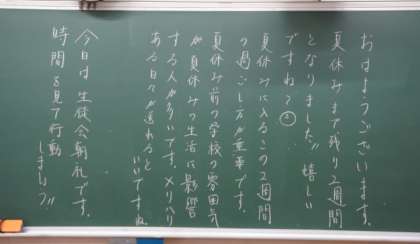 おはようございます。
夏休みまで残り2週間
となりました!! 嬉しい
ですね?
夏休みに入るこの2週間
の過ごし方が重要です。
夏休み前の学校の雰囲気
が夏休みの生活に影響
する人が多いです。メリハリ
ある日々が送れると
いいですね
今日は生徒会朝礼です。
時間を見て行動
しましょう!!